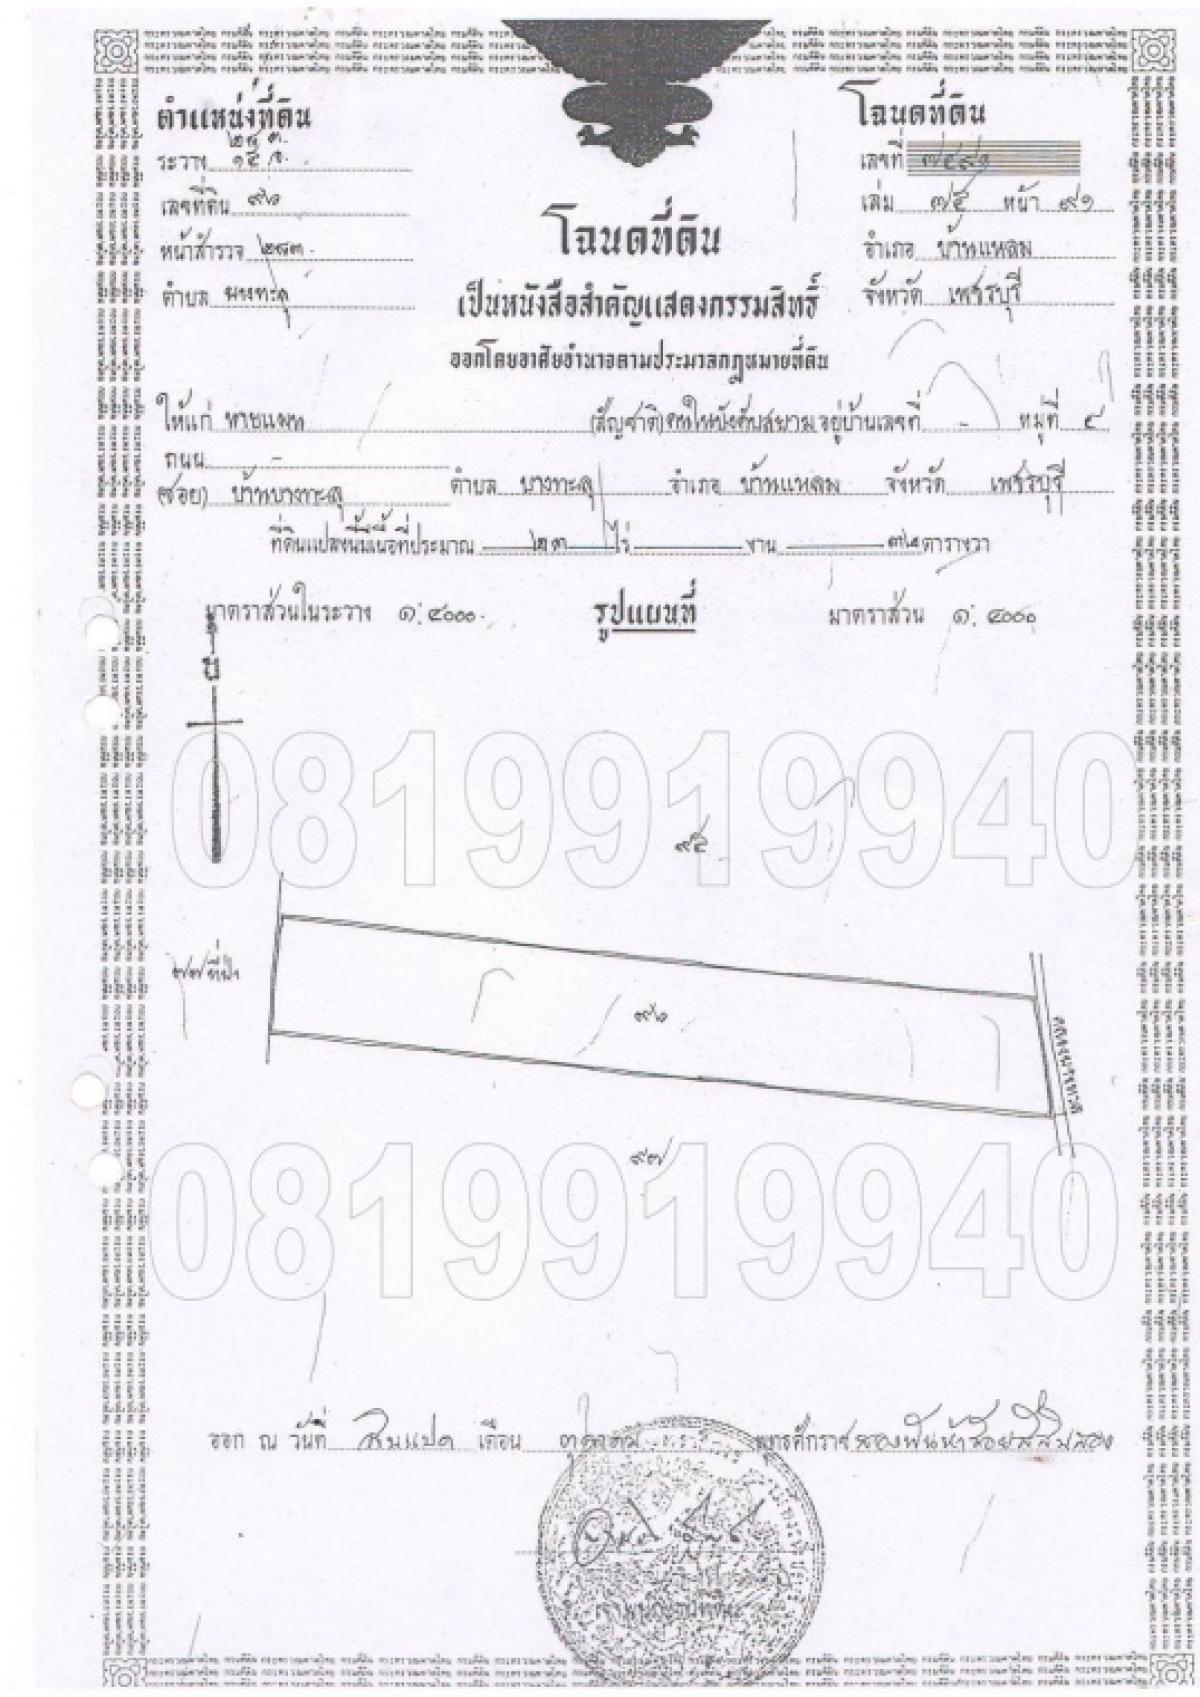 ตำแหน่งที่ดิน
ระวาง
เลขที่ดิน ๙๖
หน้าสำรวจ ๒๘๓
ตำบล บางทะลุ
โฉนดที่ดิน
เลขที่ ๗๔๙๑
เล่ม ๗๕ หน้า ๙๑
อำเภอ บ้านแหลม
จังหวัด เพชรบุรี
โฉนดที่ดิน
เป็นหนังสือสำคัญแสดงกรรมสิทธิ์
ออกโดยอาศัยอำนาจตามประมวลกฎหมายที่ดิน
ให้แก่ (สัญชาติ) คนในบังคับสยาม อยู่บ้านเลขที่ - หมู่ที่ ๔
ถนน -
(ซอย) บ้านบางทะลุ ตำบล บางทะลุ อำเภอ บ้านแหลม จังหวัด เพชรบุรี
ที่ดินแปลงนี้มีเนื้อที่ประมาณ ๒๓ ไร่ งาน ตารางวา
มาตราส่วนในระวาง ๑:๔๐๐๐ รูปแผนที่ มาตราส่วน ๑:๔๐๐๐
น
0819919940
๙๕
๗๗ ที่ป่า
๙๖
๙๗
0819919940
ออก ณ วันที่ สิบแปด เดือน ตุลาคม พุทธศักราช สองพันห้าร้อยสี่สิบสอง
เจ้าพนักงานที่ดิน